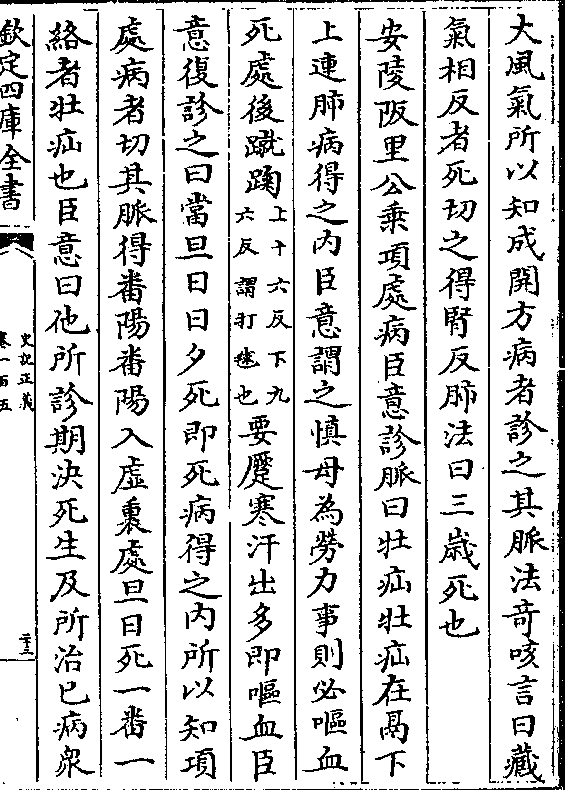 大風氣所以知成開方病者診之其脈法竒咳言曰藏
氣相反者死切之得腎反肺法曰三歳死也
安陵阪里公乗項處病臣意診脈曰牡疝牡疝在鬲下
上連肺病得之内臣意謂之慎毋為勞力事則必嘔血
死處後蹴踘上千六反下九六反謂打毬也要蹷寒汗出多即嘔血臣
意復診之曰當旦日日夕死即死病得之内所以知項
處病者切其脈得番陽番陽入虚裏處旦日死一番一
絡者牡疝也臣意曰他所診期決死生及所治已病衆
欽定四庫全書
史記正義
卷一百五
二十三